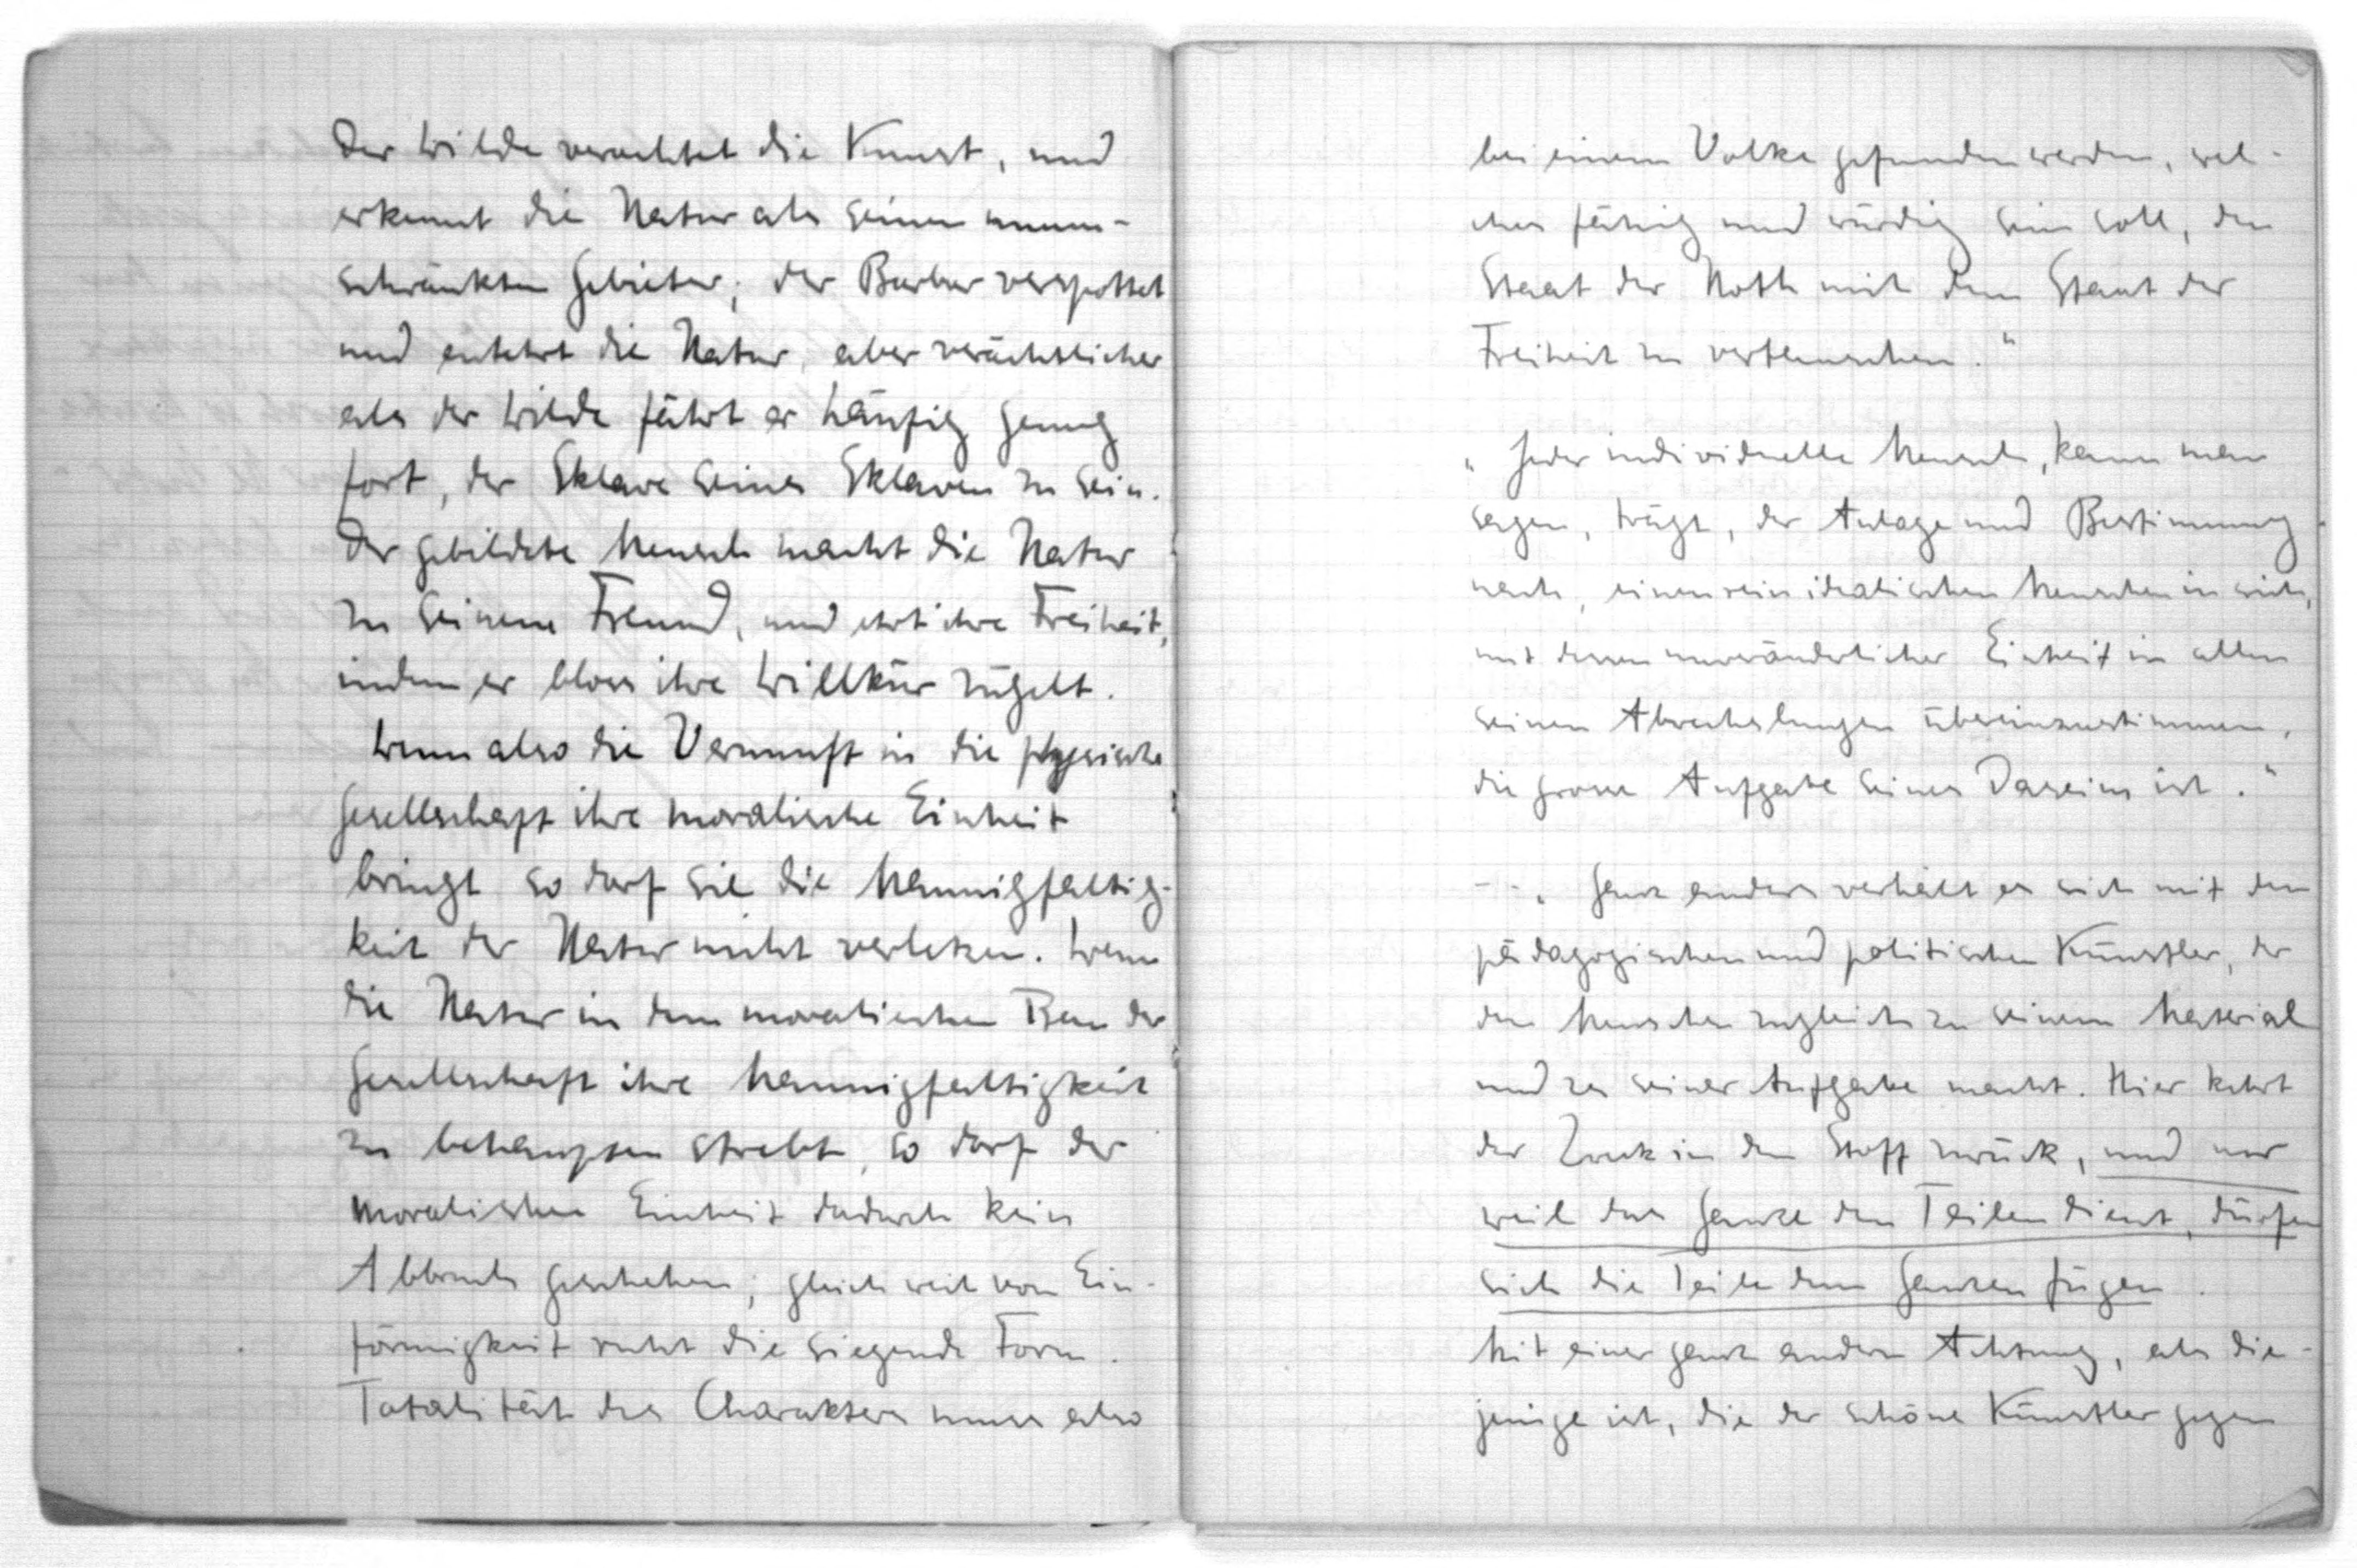 Der Wilde verachtet die Kunst, und
erkennt die Natur als seinen unum-
schränkten Gebieter; der Barbar verspottet
und entehrt die Natur, aber verächtlicher
als der Wilde fährt er häufig genug
fort, der Sklave seines Sklaven zu sein.
Der gebildete Mensch macht die Natur
zu seinem Freund, und ehrt ihre Freiheit,
indem er bloss ihre Willkür zügelt.
Wenn also die Vernunft in die physische
Gesellschaft ihre moralische Einheit
bringt so darf sie die Mannigfaltig-
keit der Natur nicht verletzen. Wenn
die Natur in dem moralischen Bau der
Gesellschaft ihre Mannigfaltigkeit
zu behaupten strebt, so darf der
moralischen Einheit dadurch kein
Abbruch geschehen; gleich weit von Ein-
förmigkeit ruht die siegende Form.
Totalität des Charakters muss also
bei einem Volke gefunden werden, wel-
ches fähig und würdig sein soll, den
Staat der Noth mit dem Staat der
Freiheit zu vertauschen."
„Jeder individuelle Mensch, kann man
sagen, trägt, der Anlage und Bestimmung
nach, einen rein idealischen Menschen in sich,
mit dessen unveränderlicher Einheit in allen
seinen Abwechslungen übereinzustimmen,
die grosse Aufgabe seines Daseins ist."
-- „Ganz anders verhält es sich mit dem
pädagogischen und politischen Künstler, der
den Menschen zugleich zu seinem Material
und zu seiner Aufgabe macht. Hier kehrt
der Zweck in den Stoff zurück, und nur
weil das Ganze den Teilen dient, dürfen
sich die Teile dem Ganzen fügen.
Mit einer ganz andern Achtung, als die-
jenige ist, die der schöne Künstler gegen